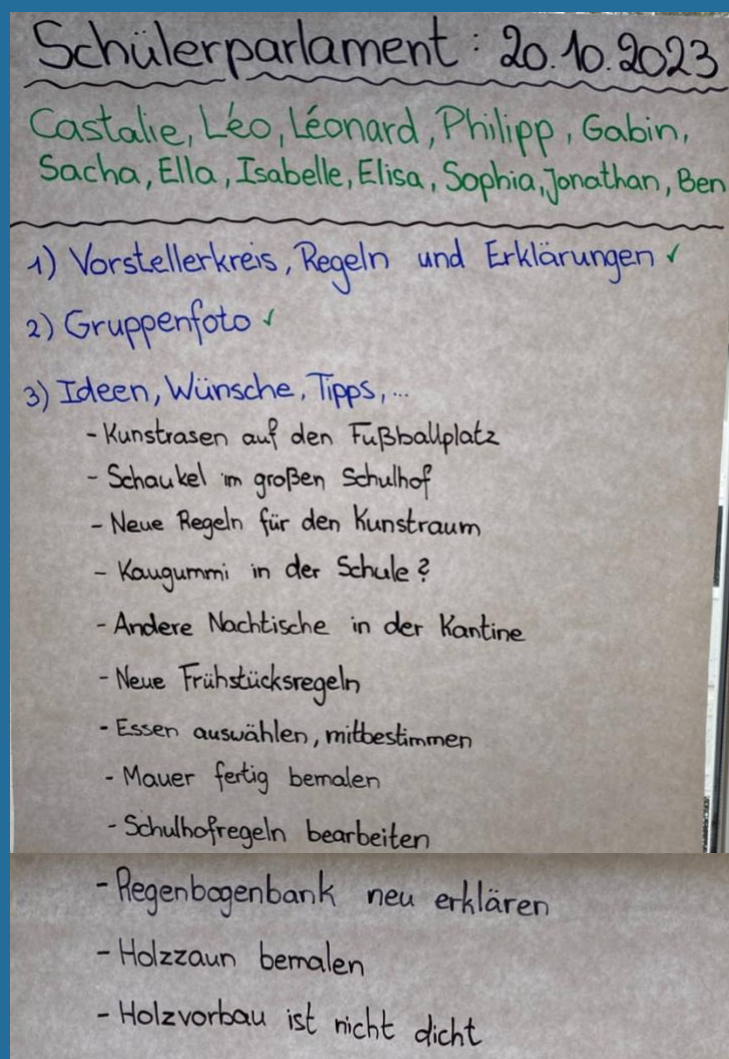 Schülerparlament: 20.10.2023
Castalie, Léo, Léonard, Philipp, Gabin,
Sacha, Ella, Isabelle, Elisa, Sophia, Jonathan, Ben
1) Vorstellerkreis, Regeln und Erklärungen ✓
2) Gruppenfoto ✓
3) Ideen, Wünsche, Tipps, ...
- Kunstrasen auf den Fußballplatz
- Schaukel im großen Schulhof
- Neue Regeln für den Kunstraum
- Kaugummi in der Schule?
- Andere Nachtische in der Kantine
- Neue Frühstücksregeln
- Essen auswählen, mitbestimmen
- Mauer fertig bemalen
- Schulhofregeln bearbeiten
- Regenbogenbank neu erklären
- Holzzaun bemalen
- Holzvorbau ist nicht dicht